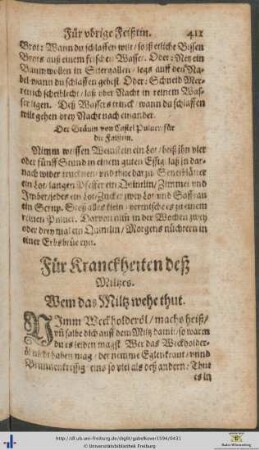 Für vbrige Feißtin. 412
Brot: Wann du schlaffen wilt / so iß etliche Bissen
Brots auß einem frischen Wasser. Oder: Netz ein
Baumwollen in Siternallen / legs auff den Na-
bel wann du schlaffen gehest. Oder: Schneid Mer-
rettich scheiblecht / laß vber Nacht in reinem Was-
ser ligen. Deß Wassers trinck / wann du schlaffen
wilt gehen drey Nacht nach einander.
für
die Feißtin.
Nimm weissen Weinstein ein lot / beiß ihn vier
oder fünff Stund in einem guten Essig / laß jn dar-
nach wider trucknen / vnd thue darzu Senetblätter
ein lot / langen Pfeffer ein Quintlin / Zimmet vnd
Imber / jedes ein lot / Zucker zwey lot
ein Stoß alles klein / vermischs zu einem
reinen Puluer. Darvon nim in der Wochen zwey
oder drey mal ein Quintlin / Morgens nüchtern in
einer Erbsbrüe eyn.
Für Kranckheiten deß
Miltzes.
Wem das Miltz wehe thut.
Nimm Weckholderöl / machs heiß /
vñ salbe dich auff dem Miltz damit / so warm
du es leiden magst. Wer das Weckholder-
öl nicht haben mag / der nemme Egelnkraut / vnnd
Brunnenkressig eins so viel als deß andern: Thut
es in
http://dl.ub.uni-freiburg.de/diglit/gabelkover1594/0431
© Universitätsbibliothek Freiburg
Baden-Württemberg